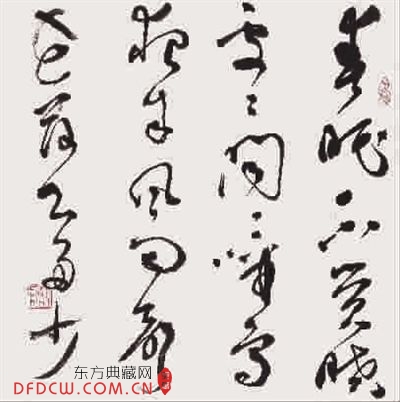 春眠不觉晓
处々闻啼鸟
夜来风雨声
花落知多少
东方典藏网
DFDCW.COM.CN